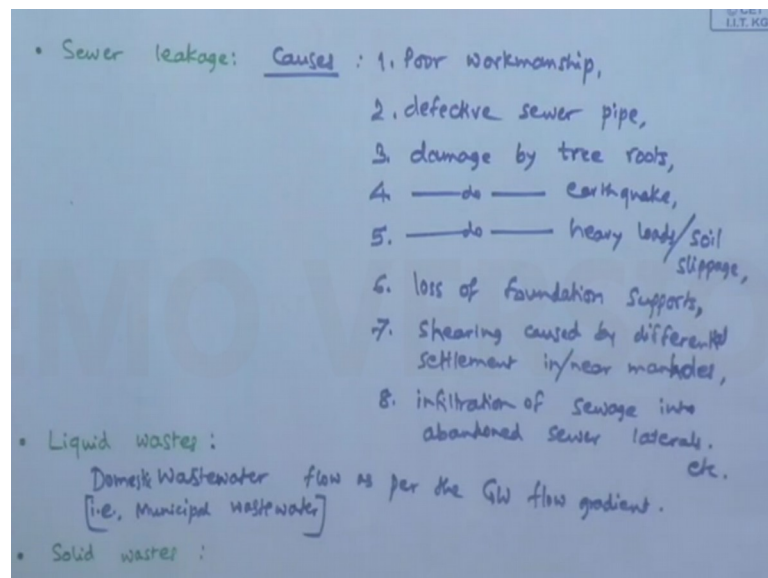 © CET
I.I.T. KG
• Sewer leakage: Causes : 1. Poor workmanship,
2. defective sewer pipe,
3. damage by tree roots,
4. —do— earthquake,
5. —do— heavy loads/soil
slippage,
6. loss of foundation supports,
7. Shearing caused by differential
settlement in/near manholes,
8. infiltration of sewage into
abandoned sewer laterals.
etc.
• Liquid wastes :
Domestic Wastewater flow as per the GW flow gradient.
[i.e, Municipal wastewater]
• Solid wastes :
EMO VERSIO